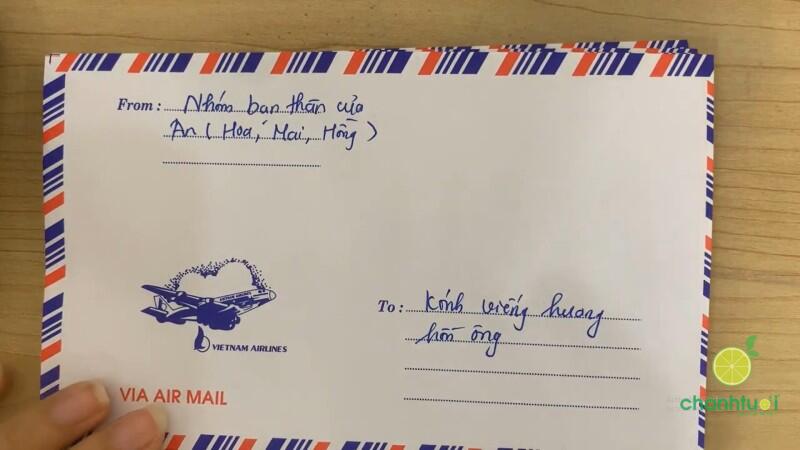 From : Nhóm bạn thân của
An ( Hoa, Mai, Hồng )
VIETNAM AIRLINES
VIA AIR MAIL
To : Kính viếng hương
hồn ông
chanhtươi